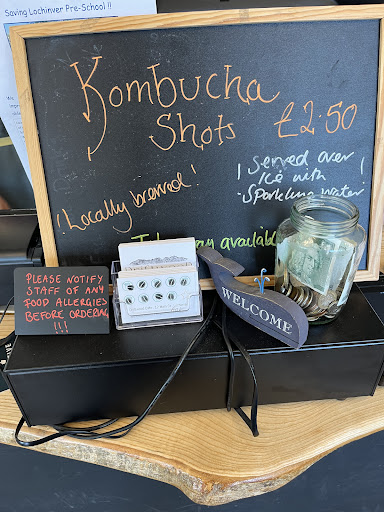 Saving Lochinver Pre-School !!
Kombucha
Shots £2.50
! Locally brewed !
! Served over !
Ice with
Sparkling water
available
PLEASE NOTIFY
STAFF OF ANY
FOOD ALLERGIES
BEFORE ORDERING
!!!
WELCOME